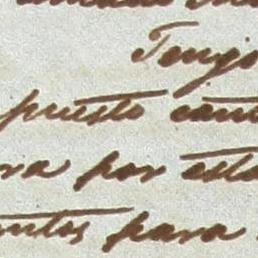 Tengo
puesto
ra por esta
ntos para